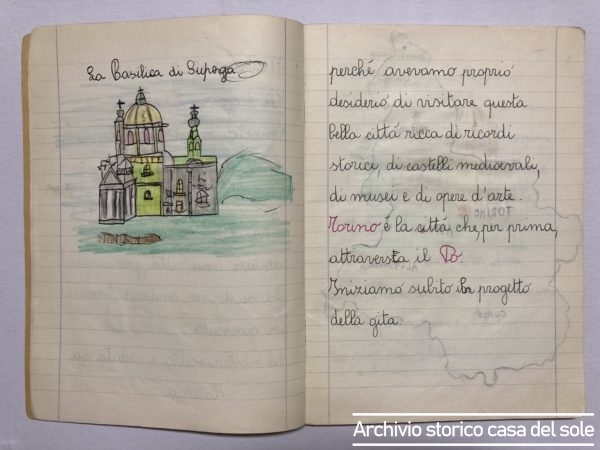 La Basilica di Superga
perché avevamo proprio
desiderio di visitare questa
bella cittá ricca di ricordi
storici, di castelli medioevali,
di musei e di opere d'arte.
Torino é la cittá che, per prima,
attraversa il Po.
Iniziamo subito il progetto
della gita.
TORINO
CUNEO
Archivio storico casa del sole